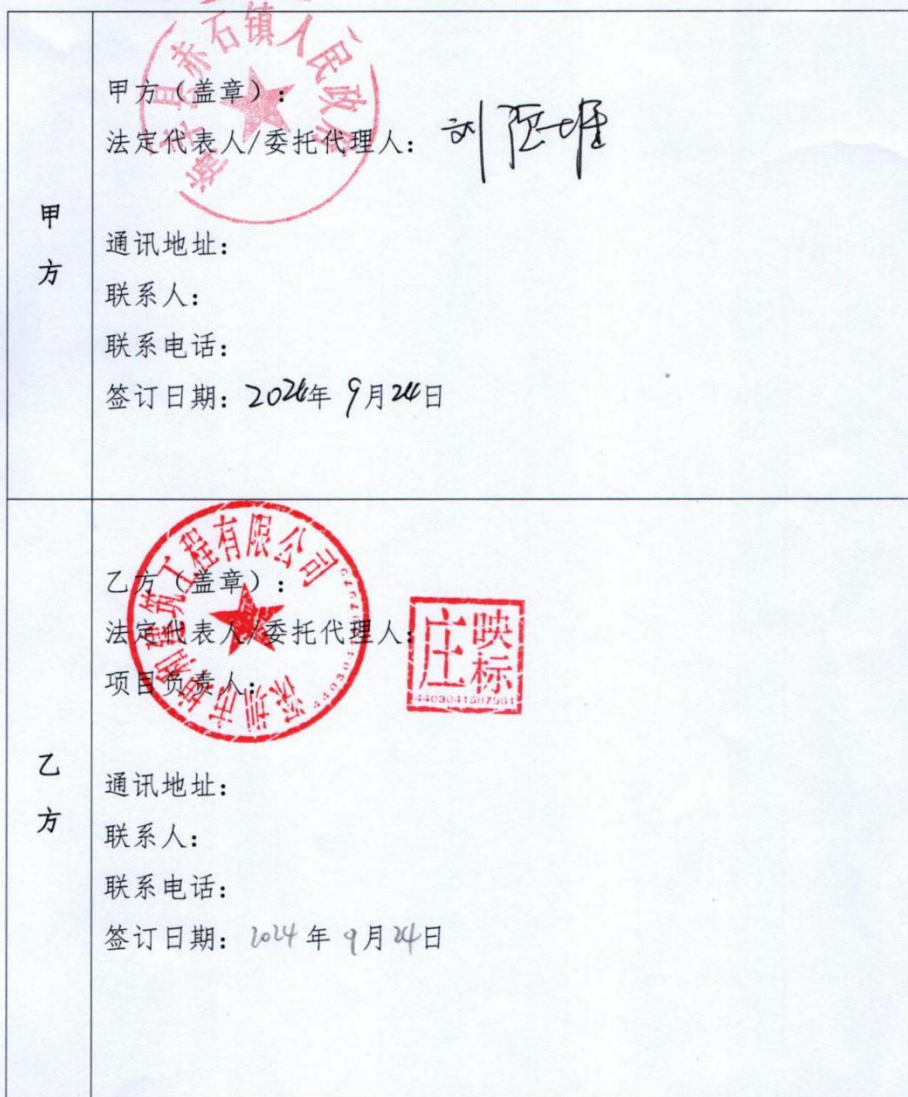 海丰县赤石镇人民政府
甲方
甲方（盖章）：
法定代表人/委托代理人： 刘
通讯地址：
联系人：
联系电话：
签订日期：2024年 9月24日
深圳市坤和建筑工程有限公司
乙方
乙方（盖章）：
法定代表人/委托代理人：
庄映标
4403041507961
项目负责人：
通讯地址：
联系人：
联系电话：
签订日期：2024年 9月24日